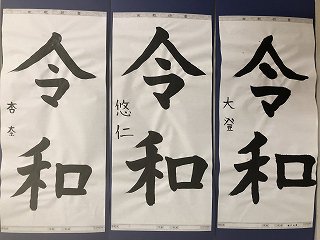 令和
杏奎
令和
悠仁
令和
大登